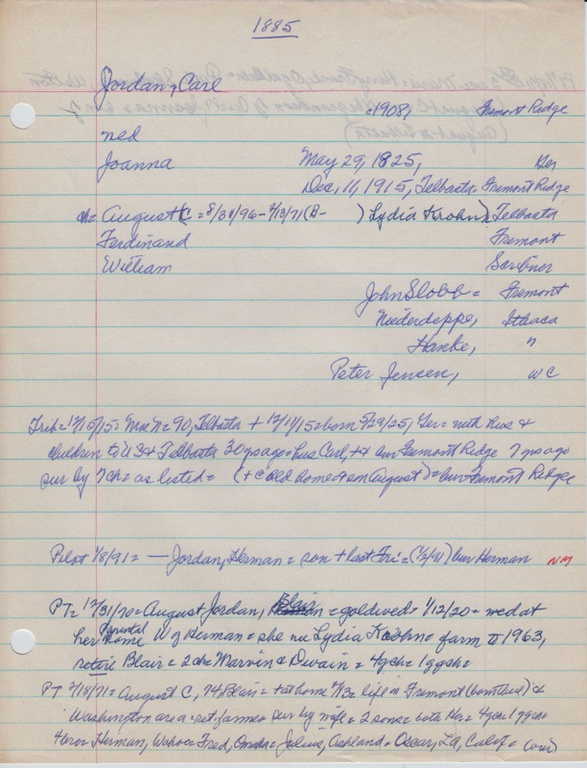 1885
Jordan, Carl
+1908, Fremont Ridge
ned
Joanna May 29, 1825, Ger
Dec, 11, 1915, Telbasta = Fremont Ridge
ch = August C = 8/31/96 - 2/13/71 (B- ) Lydia Krohn) Telbasta
Ferdinand Fremont
William Scribner
John Slobb = Fremont
Niederdeppe, Ithaca
Hanke, "
Peter Jensen, WC
Trib = 12/15/15 = Mrs = 90, Telbasta + 12/11/15 = born 5/29/25, Ger = with hus &
children to US & Telbasta 30 yrs ago = hus Carl, + & bur Fremont Ridge 7 yrs ago
sur by 7 ch = as listed = (+ @ old home = son August) = bur Fremont Ridge
Pilot 1/8/91 = — Jordan, Herman = son + last Fri = (1/2/91) bur Herman NM
PT = 12/31/70 = August Jordan, Blair = gold wed = 1/12/20 = wed at
her parental home W of Herman = she nee Lydia Krohn = farm to 1963,
retire Blair = 2 ch = Marvin & Dwain = 4 gch = 1 ggch =
PT 2/18/71 = August C, 74 Blair = + at home 2/13 = life in Fremont (born there) &
Washington area = ret. farmer sur by wife = 2 sons = both Her = 4 gch 1 ggch
4 bros = Herman, Wahoo = Fred, Omaha = Julius, Ashland = Oscar, LA, Calif = (over)